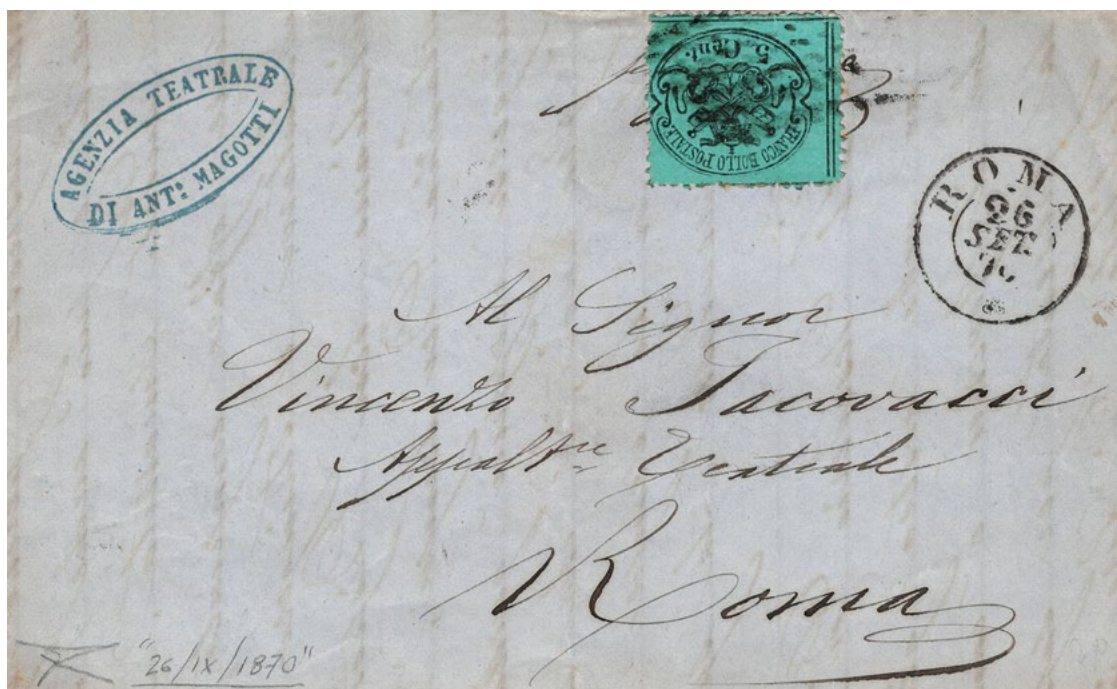 AGENZIA TEATRALE
DI ANT: MAGOTTI
5 Cent.
FRANCO BOLLO POSTALE
ROMA
26
SET
70
Al Signor
Vincenzo Jacovacci
Appalt.re Teatrale
Roma
"26/IX/1870"